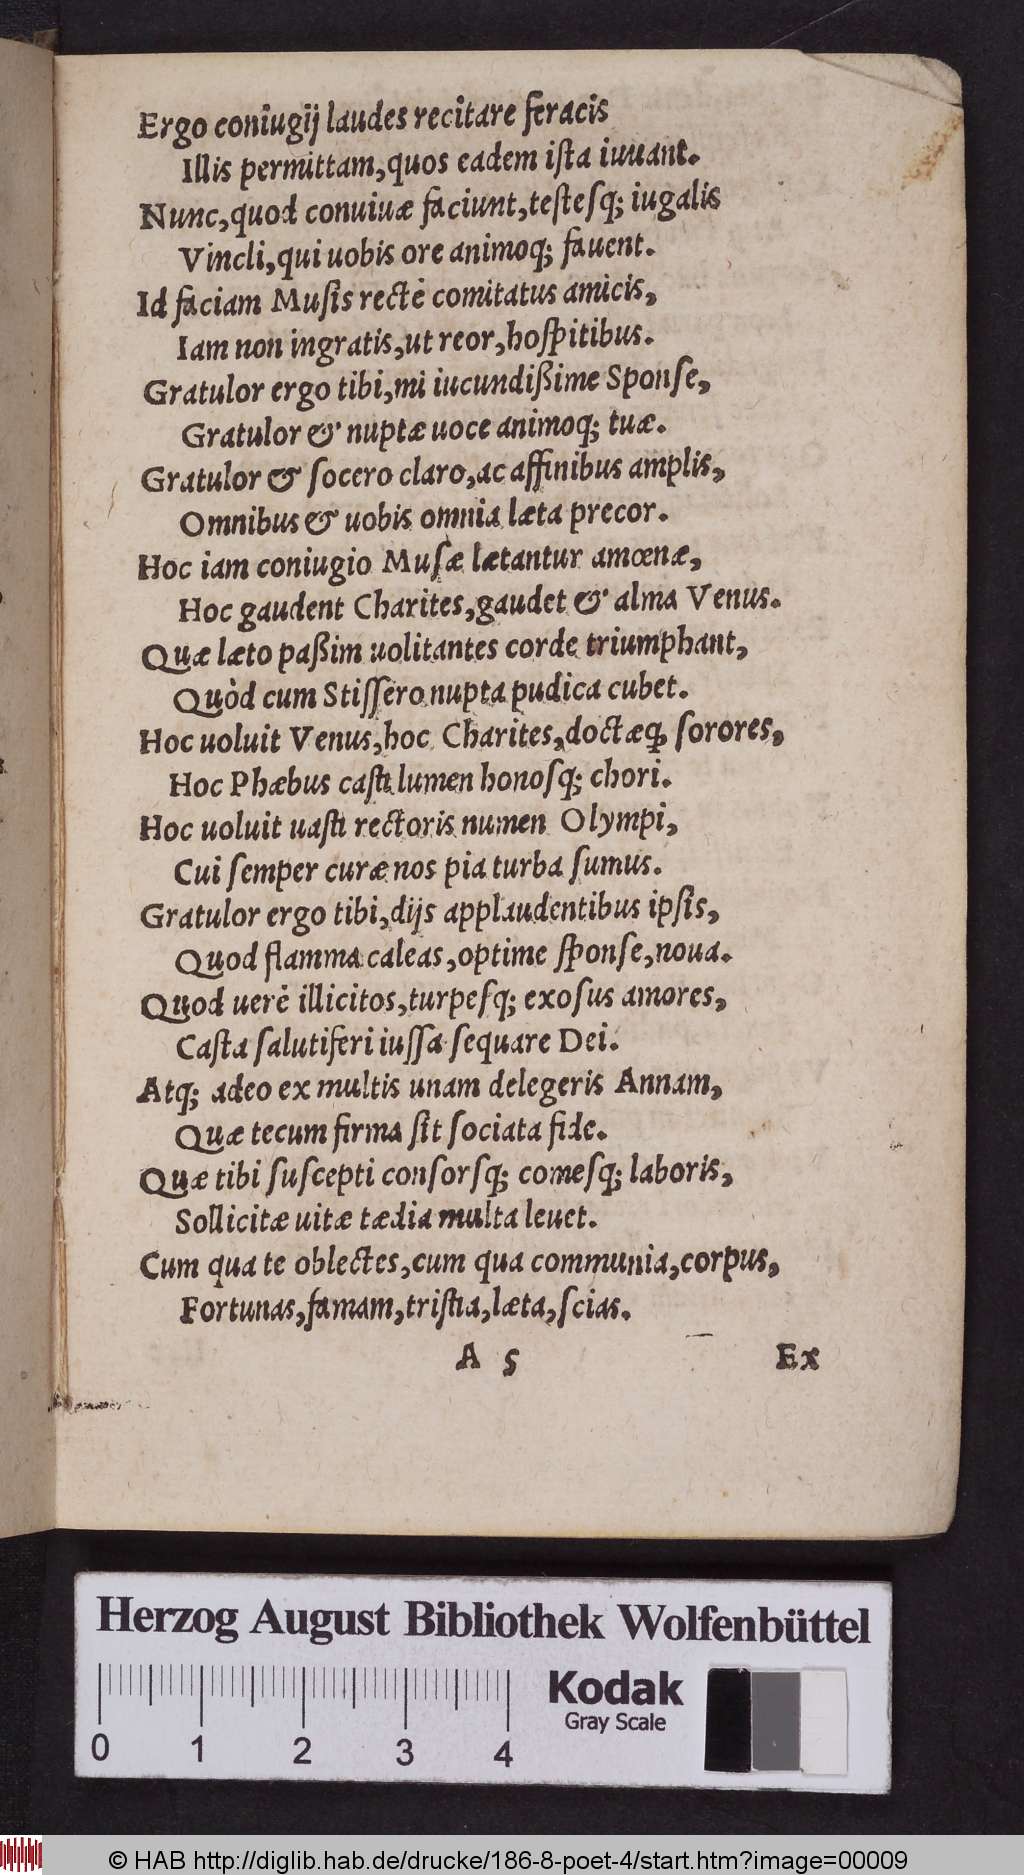 Ergo coniugij laudes recitare feracis
Illis permittam,quos eadem iſta iuuant.
Nunc,quod conuiuæ faciunt,teſteſq; iugalis
Vincli,qui uobis ore animoq; fauent.
Id faciam Muſis rectè comitatus amicis,
Iam non ingratis,ut reor,hoſpitibus.
Gratulor ergo tibi,mi iucundißime Sponſe,
Gratulor & nuptæ uoce animoq; tuæ.
Gratulor & ſocero claro,ac affinibus amplis,
Omnibus & uobis omnia læta precor.
Hoc iam coniugio Muſæ lætantur amœnæ,
Hoc gaudent Charites,gaudet & alma Venus.
Quæ læto paßim uolitantes corde triumphant,
Quòd cum Stiſſero nupta pudica cubet.
Hoc uoluit Venus,hoc Charites,doctæq; ſorores,
Hoc Phæbus caſti lumen honoſq; chori.
Hoc uoluit uaſti rectoris numen Olympi,
Cui ſemper curæ nos pia turba ſumus.
Gratulor ergo tibi,dijs applaudentibus ipſis,
Quod flamma caleas,optime ſponſe,noua.
Quod uerè illicitos,turpeſq; exoſus amores,
Caſta ſalutiferi iuſſa ſequare Dei.
Atq; adeo ex multis unam delegeris Annam,
Quæ tecum firma ſit ſociata fide.
Quæ tibi ſuſcepti conſorſq; comeſq; laboris,
Sollicitæ uitæ tædia multa leuet.
Cum qua te oblectes,cum qua communia,corpus,
Fortunas,famam,triſtia,læta,ſcias.
A 5 Ex
Herzog August Bibliothek Wolfenbüttel
Kodak
Gray Scale
0 1 2 3 4
© HAB http://diglib.hab.de/drucke/186-8-poet-4/start.htm?image=00009